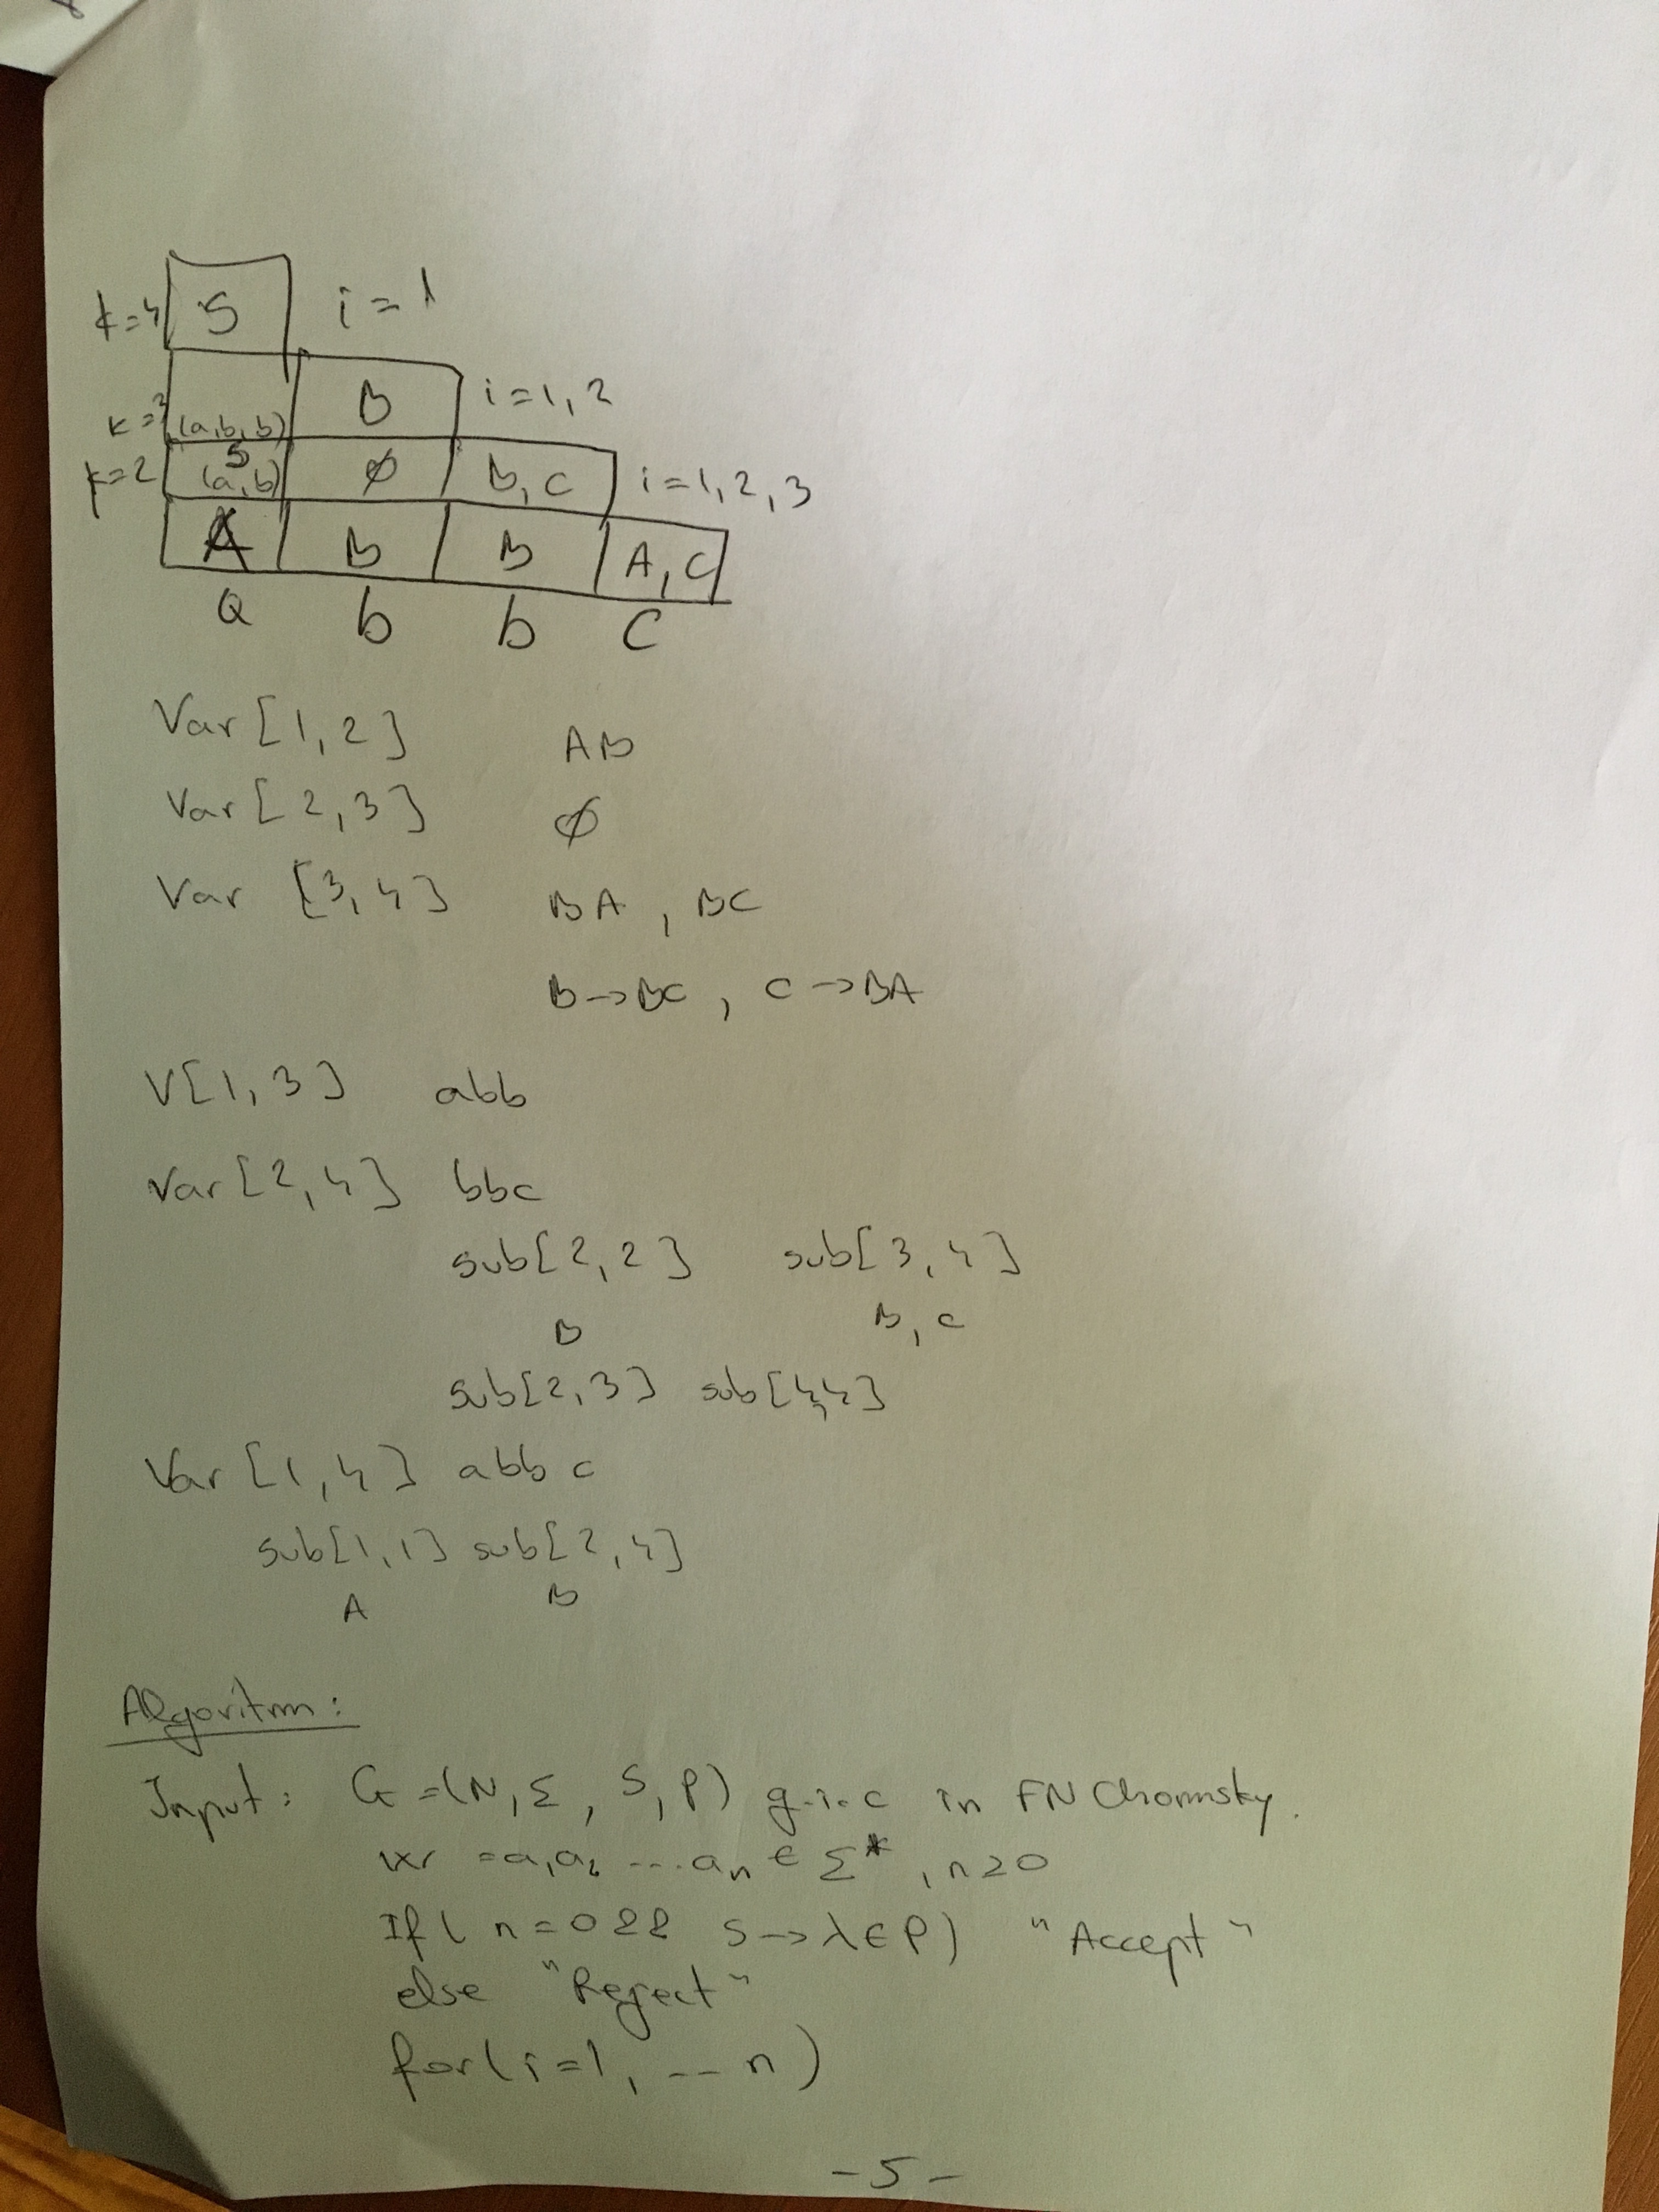 k=4 S i=1
k=3 (a,b,b) B i=1,2
S
k=2 (a,b) ∅ B,C i=1,2,3
A B B A,C
a b b c
Var[1,2] AB
Var[2,3] ∅
Var [3,4] BA, BC
B->BC, C->BA
V[1,3] abb
Var[2,4] bbc
sub[2,2] sub[3,4]
B B,C
sub[2,3] sub[4,4]
Var[1,4] abbc
sub[1,1] sub[2,4]
A B
Algoritm:
Input: G=(N,Σ,S,P) g.i.c in FN Chomsky.
w=a₁a₂...aₙ∈Σ*, n≥0
If( n=0 && S->λ∈P) "Accept"
else "Reject"
for(i=1,...n)
-5-